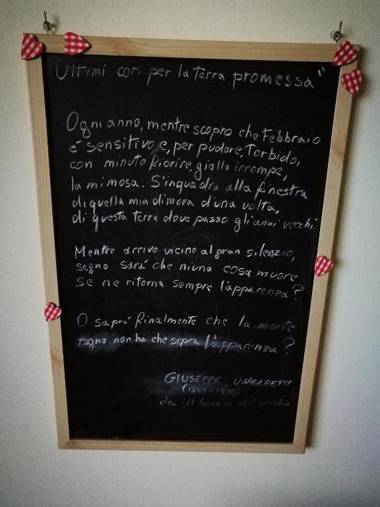 Ultimi cori per la terra promessa"
Ogni anno, mentre scopro che Febbraio
è sensitivo e, per pudore, torbido,
con minuto fiorire, gialla irrompe,
la mimosa. S'inquadra alla finestra
di quella mia dimora d'una volta,
di questa terra dove passo gli anni vecchi
Mentre arrivo vicino al gran silenzio,
segno sarà che niuna cosa muore
se ne ritorna sempre l'apparenza?
O saprò finalmente che la morte
regno non ha che sopra l'apparenza?
GIUSEPPE UNGARETTI
da